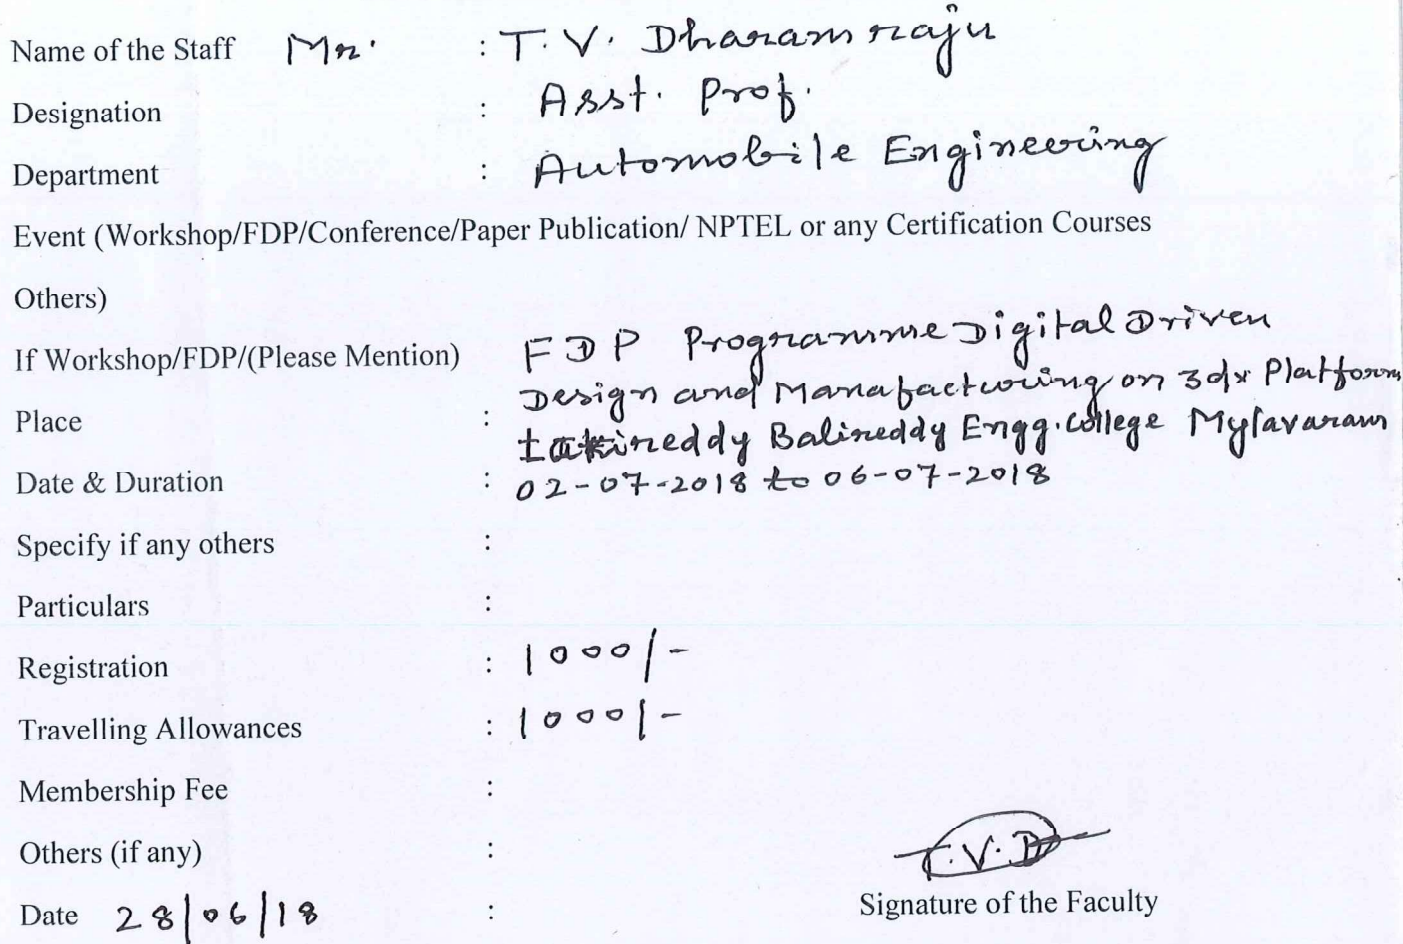 Name of the Staff Mr. : T. V. Dharamraju
Designation : Asst. Prof.
Department : Automobile Engineering
Event (Workshop/FDP/Conference/Paper Publication/ NPTEL or any Certification Courses
Others)
If Workshop/FDP/(Please Mention) FDP Programme Digital Driven
Design and Manafacturing on 3dx Platform
Place : Lakireddy Balireddy Engg. College Mylavaram
Date & Duration : 02-07-2018 to 06-07-2018
Specify if any others :
Particulars :
Registration : 1000/-
Travelling Allowances : 1000/-
Membership Fee :
Others (if any) :
T.V.D
Date 28/06/18 :
Signature of the Faculty